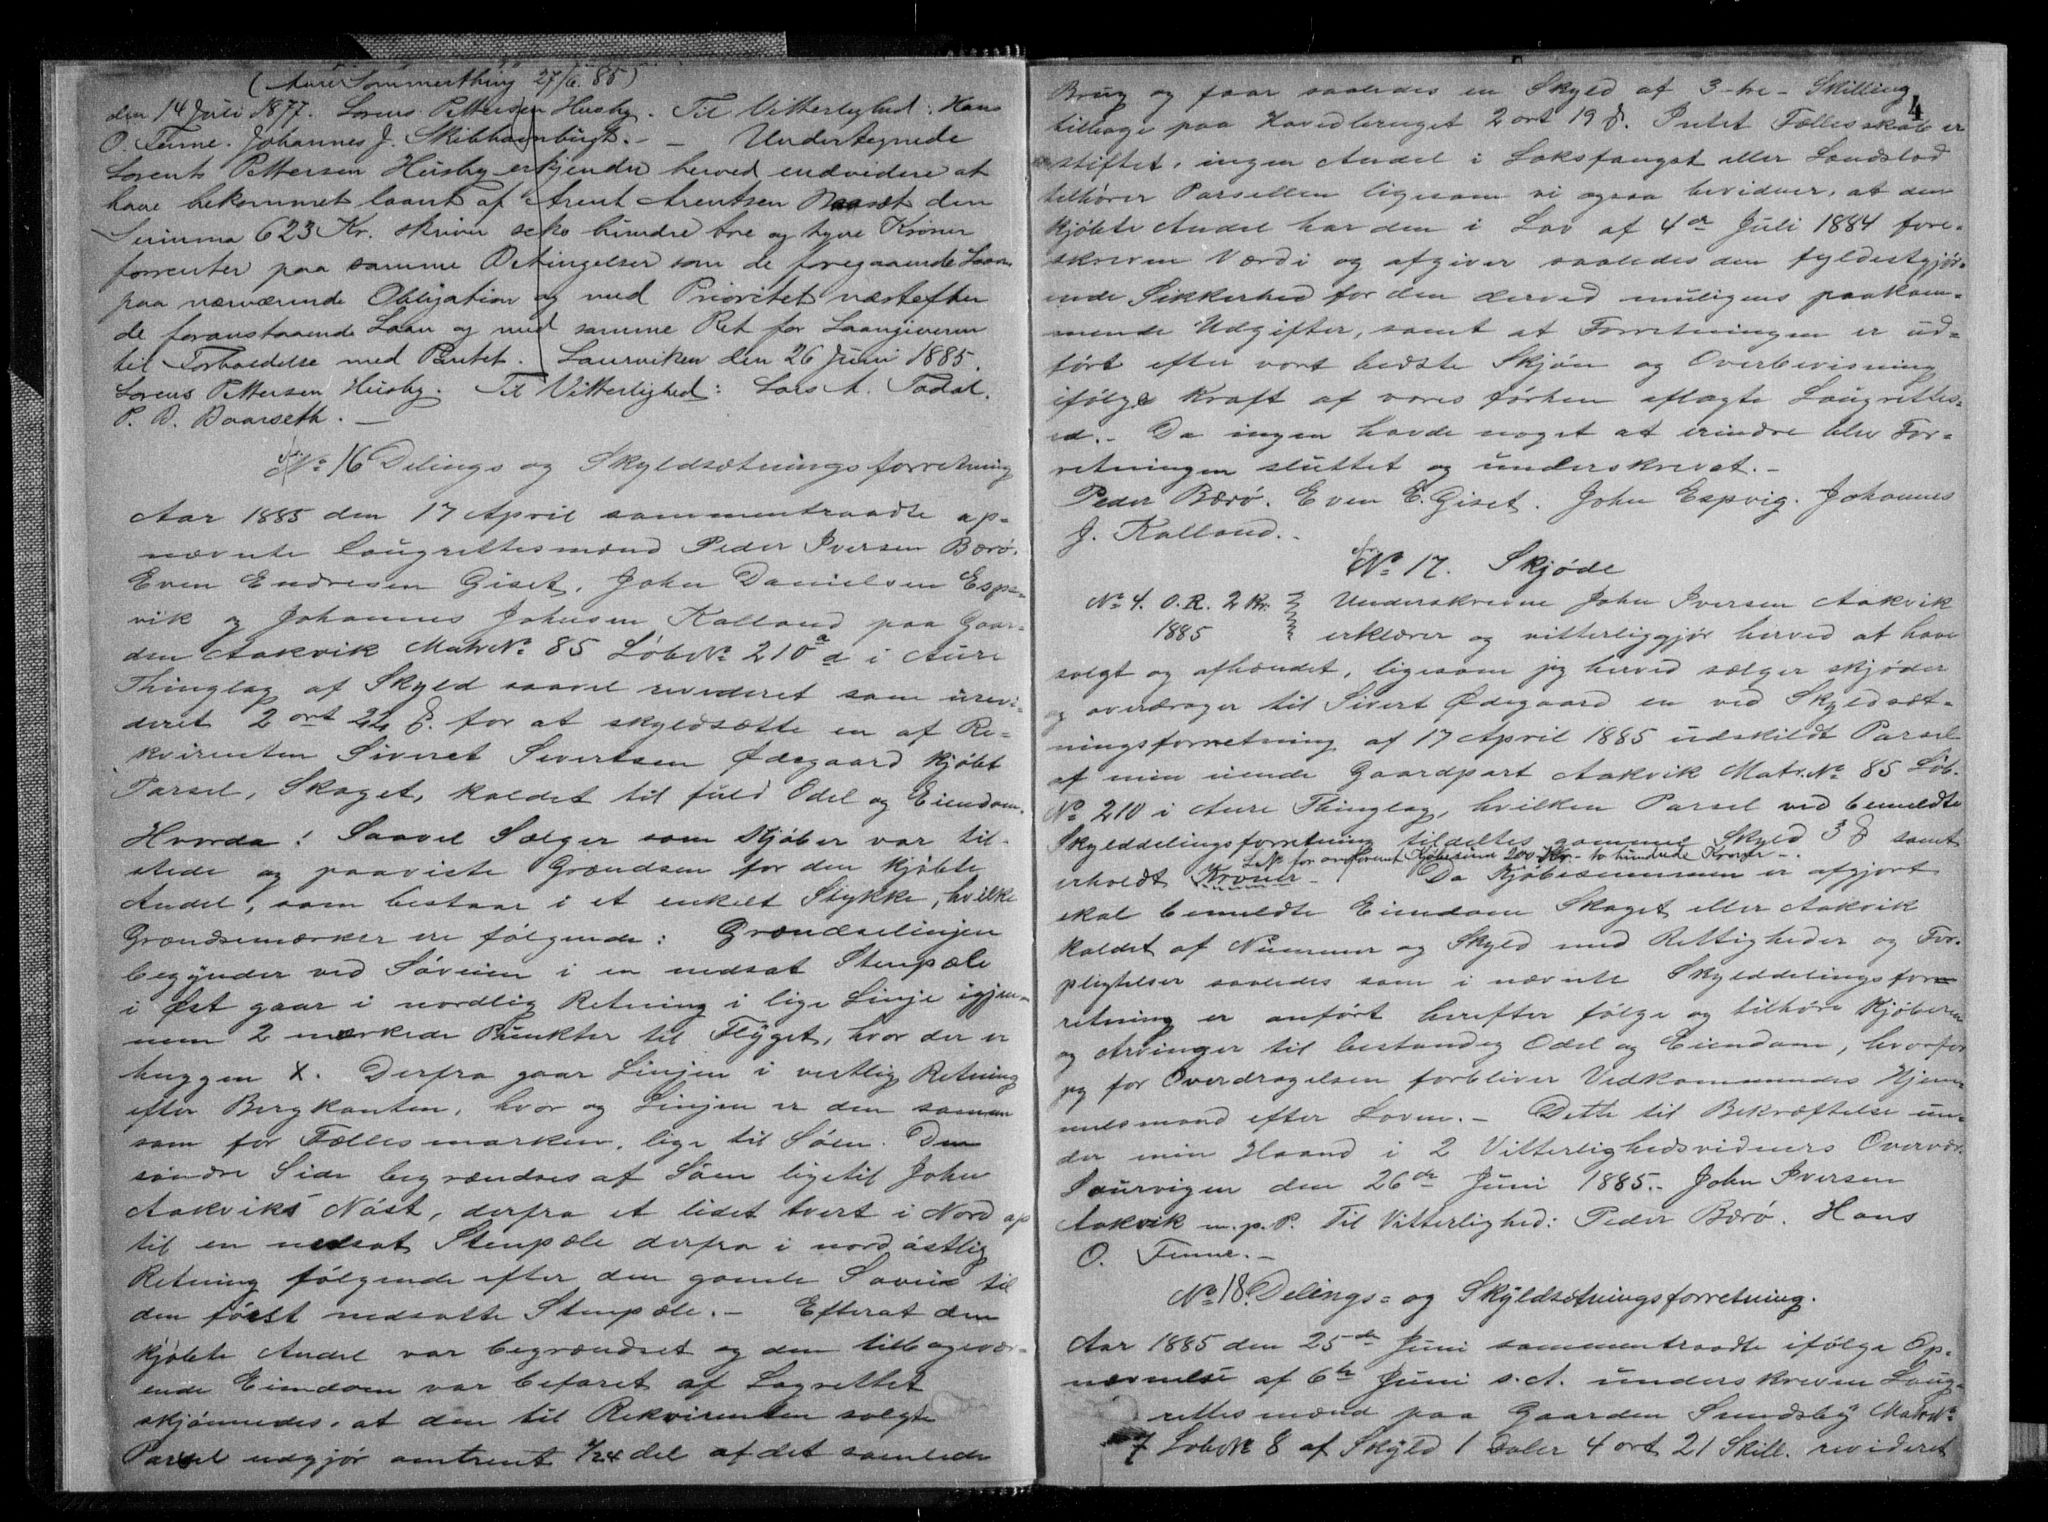 (Aure Sommerthing 27/6. 85)
den 14 Juli 1877. Lorens Pettersen Husby. Til Vitterlighed: Hans
O. Finne. Johannes J. Skibhambugt. — Undertegnede
Lorents Pettersen Husby erkjender herved endvidere at
have bekommet laant af Arent Arentsen den
Summa 623 Kr. skriver seks hundre tre og tyve Kroner
forrenter paa samme Betingelser som de foregaaende Laan
paa nærværende Obligation og med Prioritet næstefter
de foranstaaende Laan og med samme Ret for Laangiveren
til Forholdelse med Pantet. Laurviken den 26 Juni 1885.
Lorens Pettersen Husby. Til Vitterlighed: Lars A. Todal.
P. B. Baarseth. —
No 16 Delings og Skyldsætningsforretning
Aar 1885 den 17 April sammentraadte op-
nævnte Laugrettesmænd Peder Iversen Bærø.
Even Endresen Giset, John Danielsen Espe-
vik og Johannes Johnsen Kalland paa Gaar-
den Aakvik Matr No 85 Løb No 210 a i Aure
Thinglag af Skyld saavel revideret som urevi-
deret 2 ort 22 ß. for at skyldsætte en af Re-
kvirenten Sivert Sivertsen Ødegaard kjøbt
Parsel, Skaget, kaldet til fuld Odel og Eiendom.
Hvorda: Saavel Sælger som Kjøber var til-
stede og paaviste Grændsen for den kjøbte
Andel, som bestaar i et enkelt Stykke, hvilke
Grændsemærker ere følgende: Grændselinjen
begynder ved Søveien i en nedsat Stenpæle
i Øst gaar i nordlig Retning i lige Linje igjen-
nem 2 mærkede Punkter til Flyget, hvor der er
huggen X. Derfra gaar Linjen i vestlig Retning
efter Bergkanten, hvor og Linjen er den samme
som for Fællesmarken, lige til Søen. Den
søndre Side begrændses af Søen ligetil John
Aakviks Nøst, derfra et lidet tvert i Nord op
til en nedsat Stenpæle derfra i nordøstlig
Retning følgende efter den gamle Søvei til
den først nedsatte Stenpæle. — Efterat den
kjøbte Andel var begrændset og den tilbagevær-
ende Eiendom var befaret af Lagrettet
skjønnedes, at den til Rekvirenten solgte
Parsel udgjør omtrent 1/24 del af det samlede
4
Brug og faar saaledes en Skyld af 3-tre- Skilling
tilbage paa Hovedbruget 2 ort 19 ß. Intet Fællesskab er
stiftet, ingen Andel i Laksfangst eller Landslod
tilhører Parsellen ligesom vi ogsaa bevidner, at den
kjøbte Andel har den i Lov af 4de Juli 1884 fore-
skreven Værdi og afgiver saaledes den fyldestgjør-
ende Sikkerhed for den derved muligens paakom-
mende Udgifter, samt at Forretningen er ud-
ført efter vort bedste Skjøn og Overbevisning
ifølge Kraft af vores førhen aflagte Laugrettes-
ed. — Da ingen havde noget at erindre blev For-
retningen sluttet og underskrevet. —
Peder Bærø. Even E. Giset. John Espvig. Johannes
J. Kalland. -
No 17. Skjøde
No 4. O. R. 2 Kr. Underskrevne John Iversen Aakvik
1885 erklærer og vitterliggjør herved at have
solgt og afhændet, ligesom jeg herved sælger skjøder
og overdrager til Sivert Ødegaard en ved Skyldsæt-
ningsforretning af 17 April 1885 udskildt Parsel
af min eiende Gaardpart Aakvik Matr. No 85 Løb.
No 210 i Aure Thinglag, hvilken Parsel ved bemeldte
Skylddelingsforretning tildeltes gammel Skyld 3 ß samt
for omforenet Kjøbesum 200 Kr. - to hundrede Kroner -.
erholdt Kroner - Da Kjøbesummen er afgjort
skal bemeldte Eiendom Skaget eller Aakvik
kaldet af Nummer og Skyld med Rettigheder og For-
pligtelser saaledes som i nævnte Skylddelingsfor-
retning er anført herefter følge og tilhøre Kjøberen
og Arvinger til bestandig Odel og Eiendom, hvorfor
jeg for Overdragelsen forbliver Vedkommendes Hjem-
melsmand efter Loven. — Dette til Bekræftelse un-
der min Haand i 2 Vitterlighedsvidners Overvær.
Laurvigen den 26de Juni 1885. - John Iversen
Aakvik m. p. P. Til Vitterlighed: Peder Bærø. Hans
O. Finne. —
No 18. Delings- og Skyldsætningsforretning.
Aar 1885 den 25de Juni sammentraadte ifølge Op-
nævnelse af 6te Juni s. A. underskreven Laug-
rettesmænd paa Gaarden Sundsby Matr No
7 Løb No 8 af Skyld 1 Daler 4 ort 21 Skill. revideret